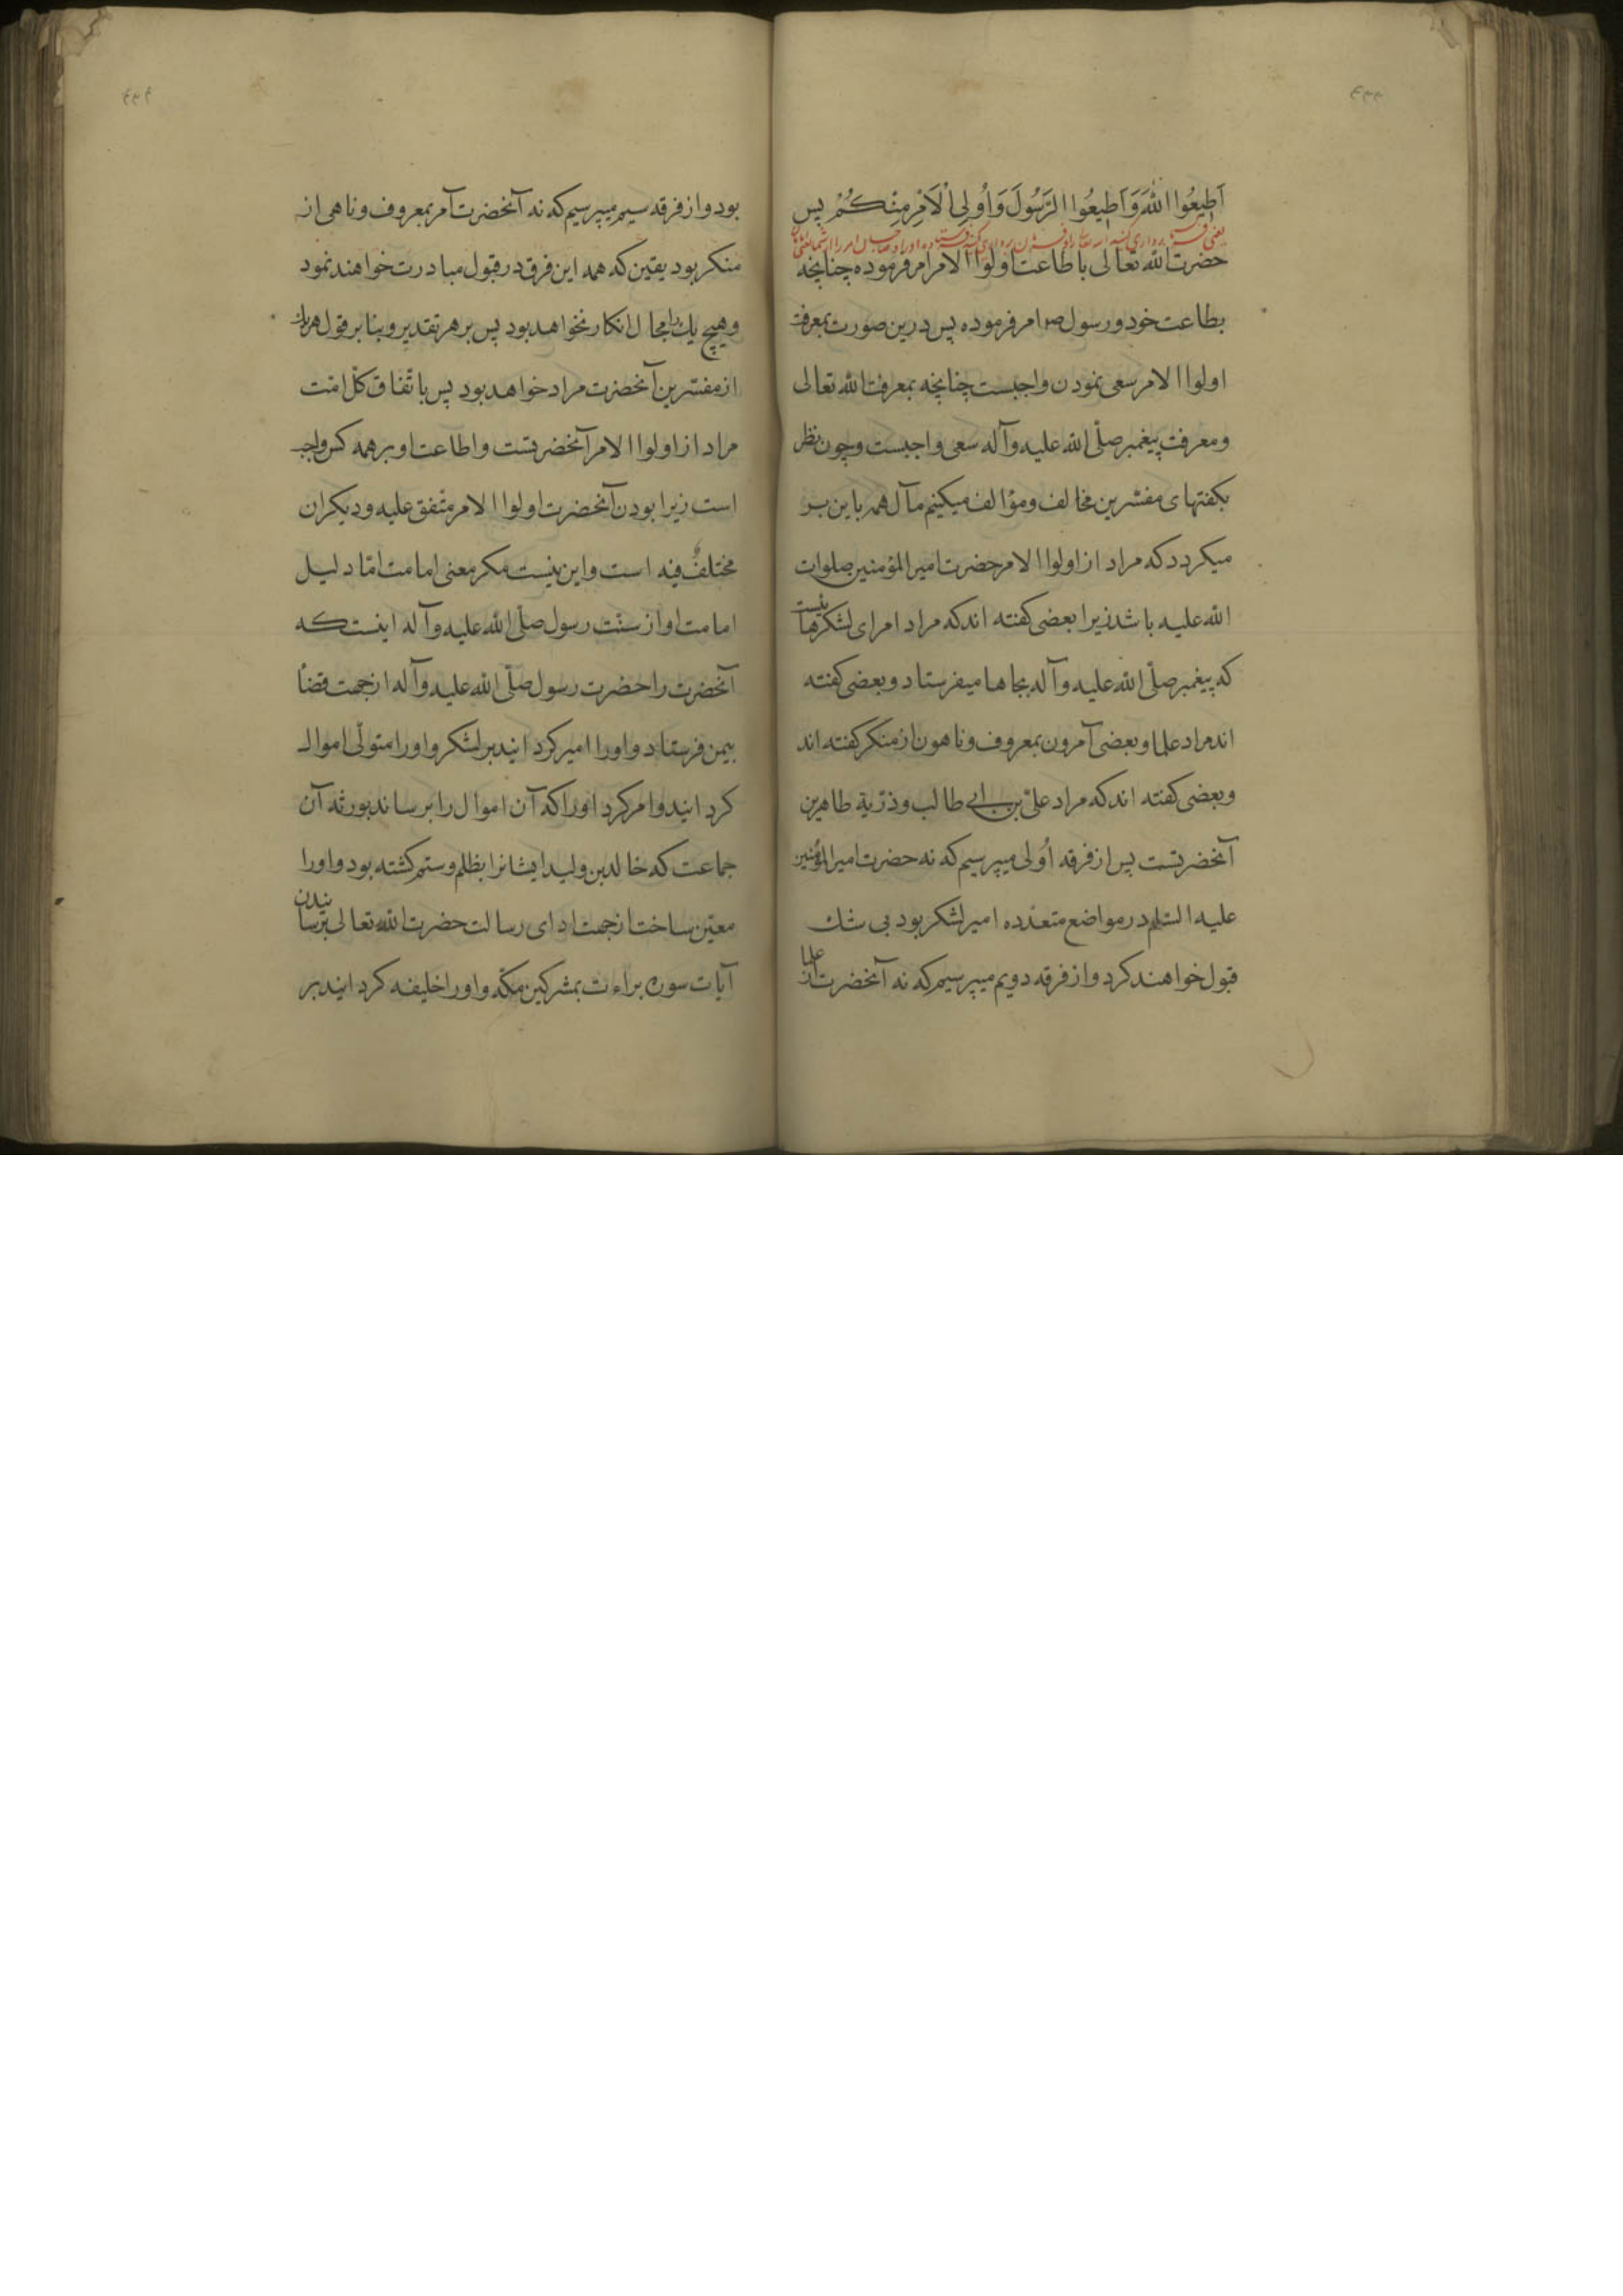 اَطِیعُوا اللهَ وَاَطِیعُوا الرَّسُولَ وَاُولِی الْاَمْرِ مِنْکُمْ پس
حضرت الله تعالی باطاعت اولوا الامر امر فرموده چنانچه
بطاعت خود و رسول ص امر فرموده پس درین صورت بمعرفت
اولوا الامر سعی نمودن واجبست چنانچه بمعرفت الله تعالی
و معرفت پیغمبر صلّی الله علیه وآله سعی واجبست و چون نظر
بکفتهای مفسّرین مخالف و مؤالف میکنیم مآل همه باین بر
میکردد که مراد از اولوا الامر حضرت امیر المؤمنین صلوات
الله علیه باشد زیرا بعضی کفته اند که مراد امرای لشکرهاییست
که پیغمبر صلّی الله علیه وآله بجاها میفرستاد و بعضی کفته
اند مراد علما و بعضی آمرون بمعروف و ناهون از منکر کفته اند
و بعضی کفته اند که مراد علیّ بن ابی طالب و ذرّیة طاهرین
آنحضرتست پس از فرقه اُولی میپرسیم که نه حضرت امیر المؤمنین
علیه السّلم در مواضع متعدّده امیر لشکر بود بی شك
قبول خواهند کرد و از فرقه دویم میپرسیم که نه آنحضرت از علما
بود و از فرقه سیم میپرسیم که نه آنحضرت آمر بمعروف و ناهی از
منکر بود یقین که همه این فرق در قبول مبادرت خواهند نمود
و هیچ یك را مجال انکار نخواهد بود پس بر هر تقدیر و بنا بر قول هریك
از مفسّرین آنحضرت مراد خواهد بود پس باتّفاق کلّ امّت
مراد از اولوا الامر آنحضرتست و اطاعت او بر همه کس واجب
است زیرا بودن آنحضرت اولوا الامر متّفق علیه و دیکران
مختلفٌ فیه است و این نیست مکر معنی امامت امّا دلیل
امامت او از سنّت رسول صلّی الله علیه وآله اینست که
آنحضرت را حضرت رسول صلّی الله علیه وآله از جهت قضا
بیمن فرستاد و اورا امیر کردانید بر لشکر و اورا متولّی اموال
کردانید و امر کرد اورا که آن اموال را برساند بورثه آن
جماعت که خالد بن ولید ایشانرا بظلم و ستم کشته بود و اورا
معیّن ساخت از جهت ادای رسالت حضرت الله تعالی برسانیدن
آیات سوره براءت بمشرکین مکّه و اورا خلیفه کردانید بر